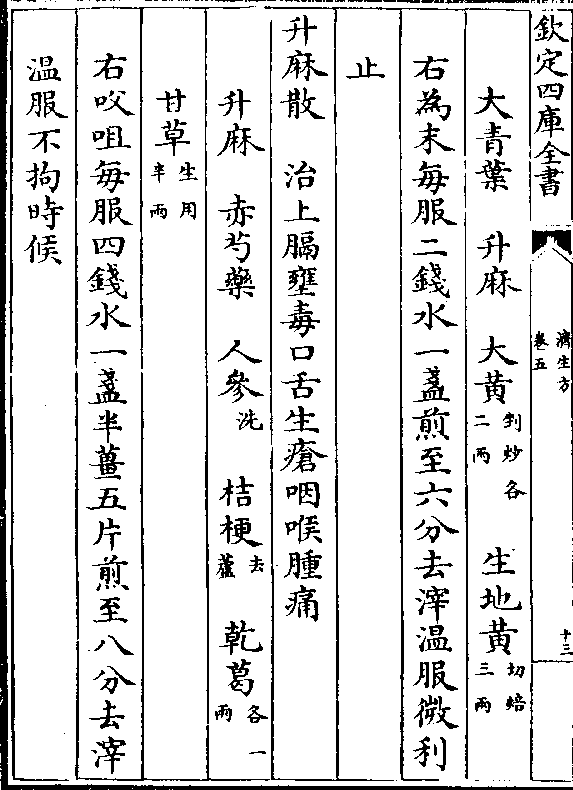 欽定四庫全書
濟生方
卷五
十三
大青葉 升麻 大黃剉炒各二兩 生地黃切焙三兩
右為末每服二錢水一盞煎至六分去滓温服微利
止
升麻散 治上膈壅毒口舌生瘡咽喉腫痛
升麻 赤芍藥 人參洗 桔梗去蘆 乾葛各一兩
甘草生用半兩
右㕮咀每服四錢水一盞半薑五片煎至八分去滓
温服不拘時候